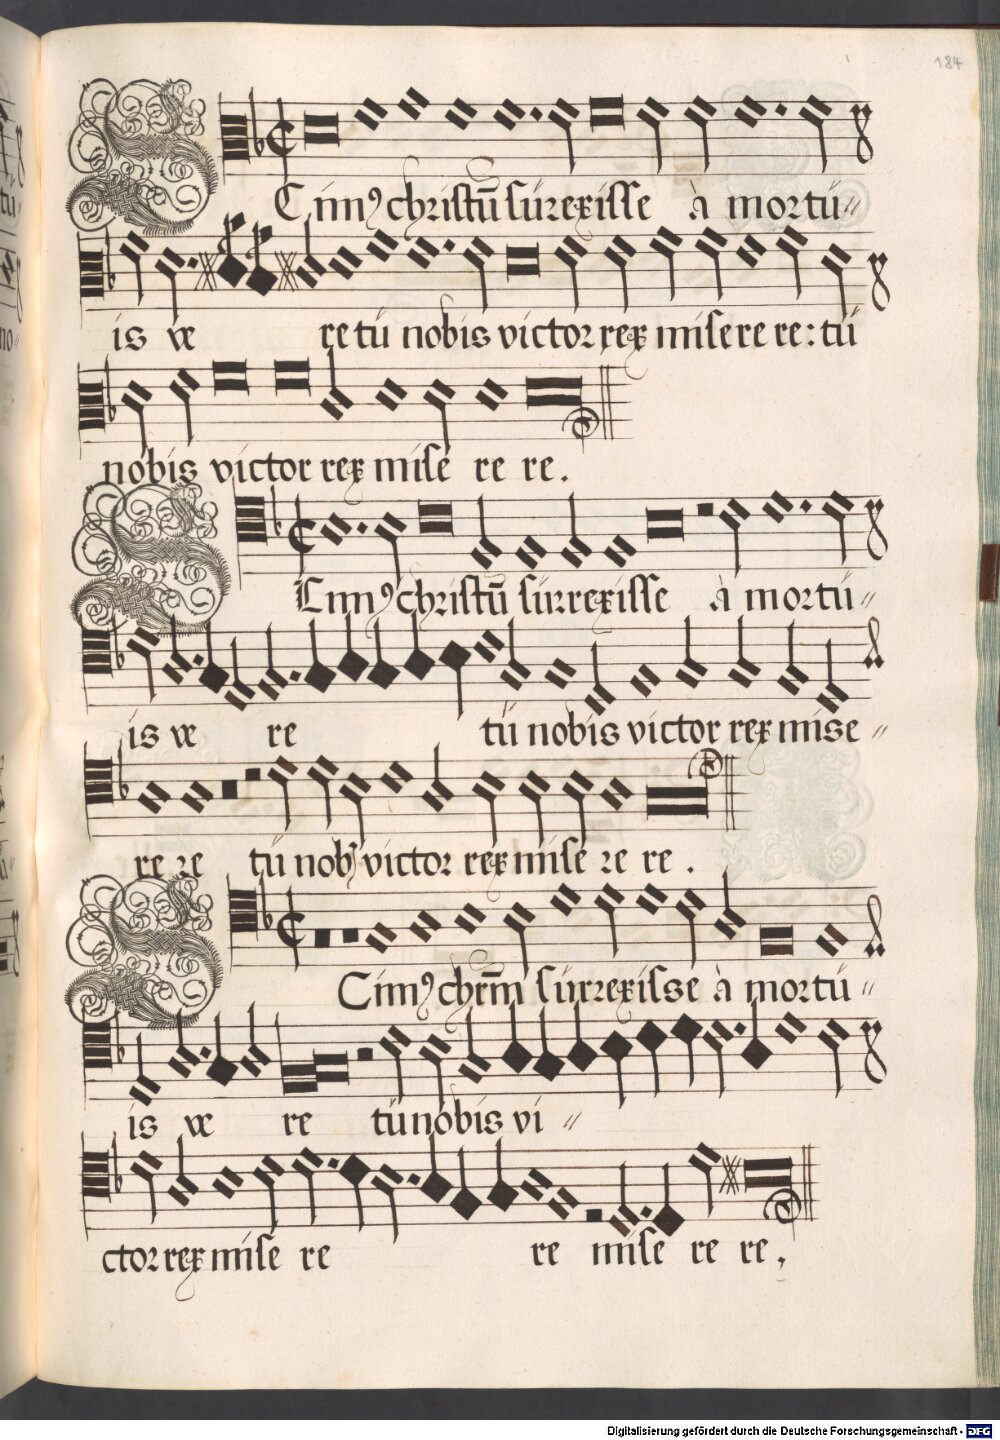 184
Scim⁹ christū surexisse à mortu
is ve re tu nobis victor rex misere re: tu
nobis victor rex mise re re.
Scim⁹ christū surrexisse à mortu
is ve re tu nobis victor rex mise
re re tu nob victor rex mise re re.
Scim⁹ chrm surrexisse à mortu
is ve re tu nobis vi
ctor rex mise re re mise re re.
Digitalisierung gefördert durch die Deutsche Forschungsgemeinschaft - DFG